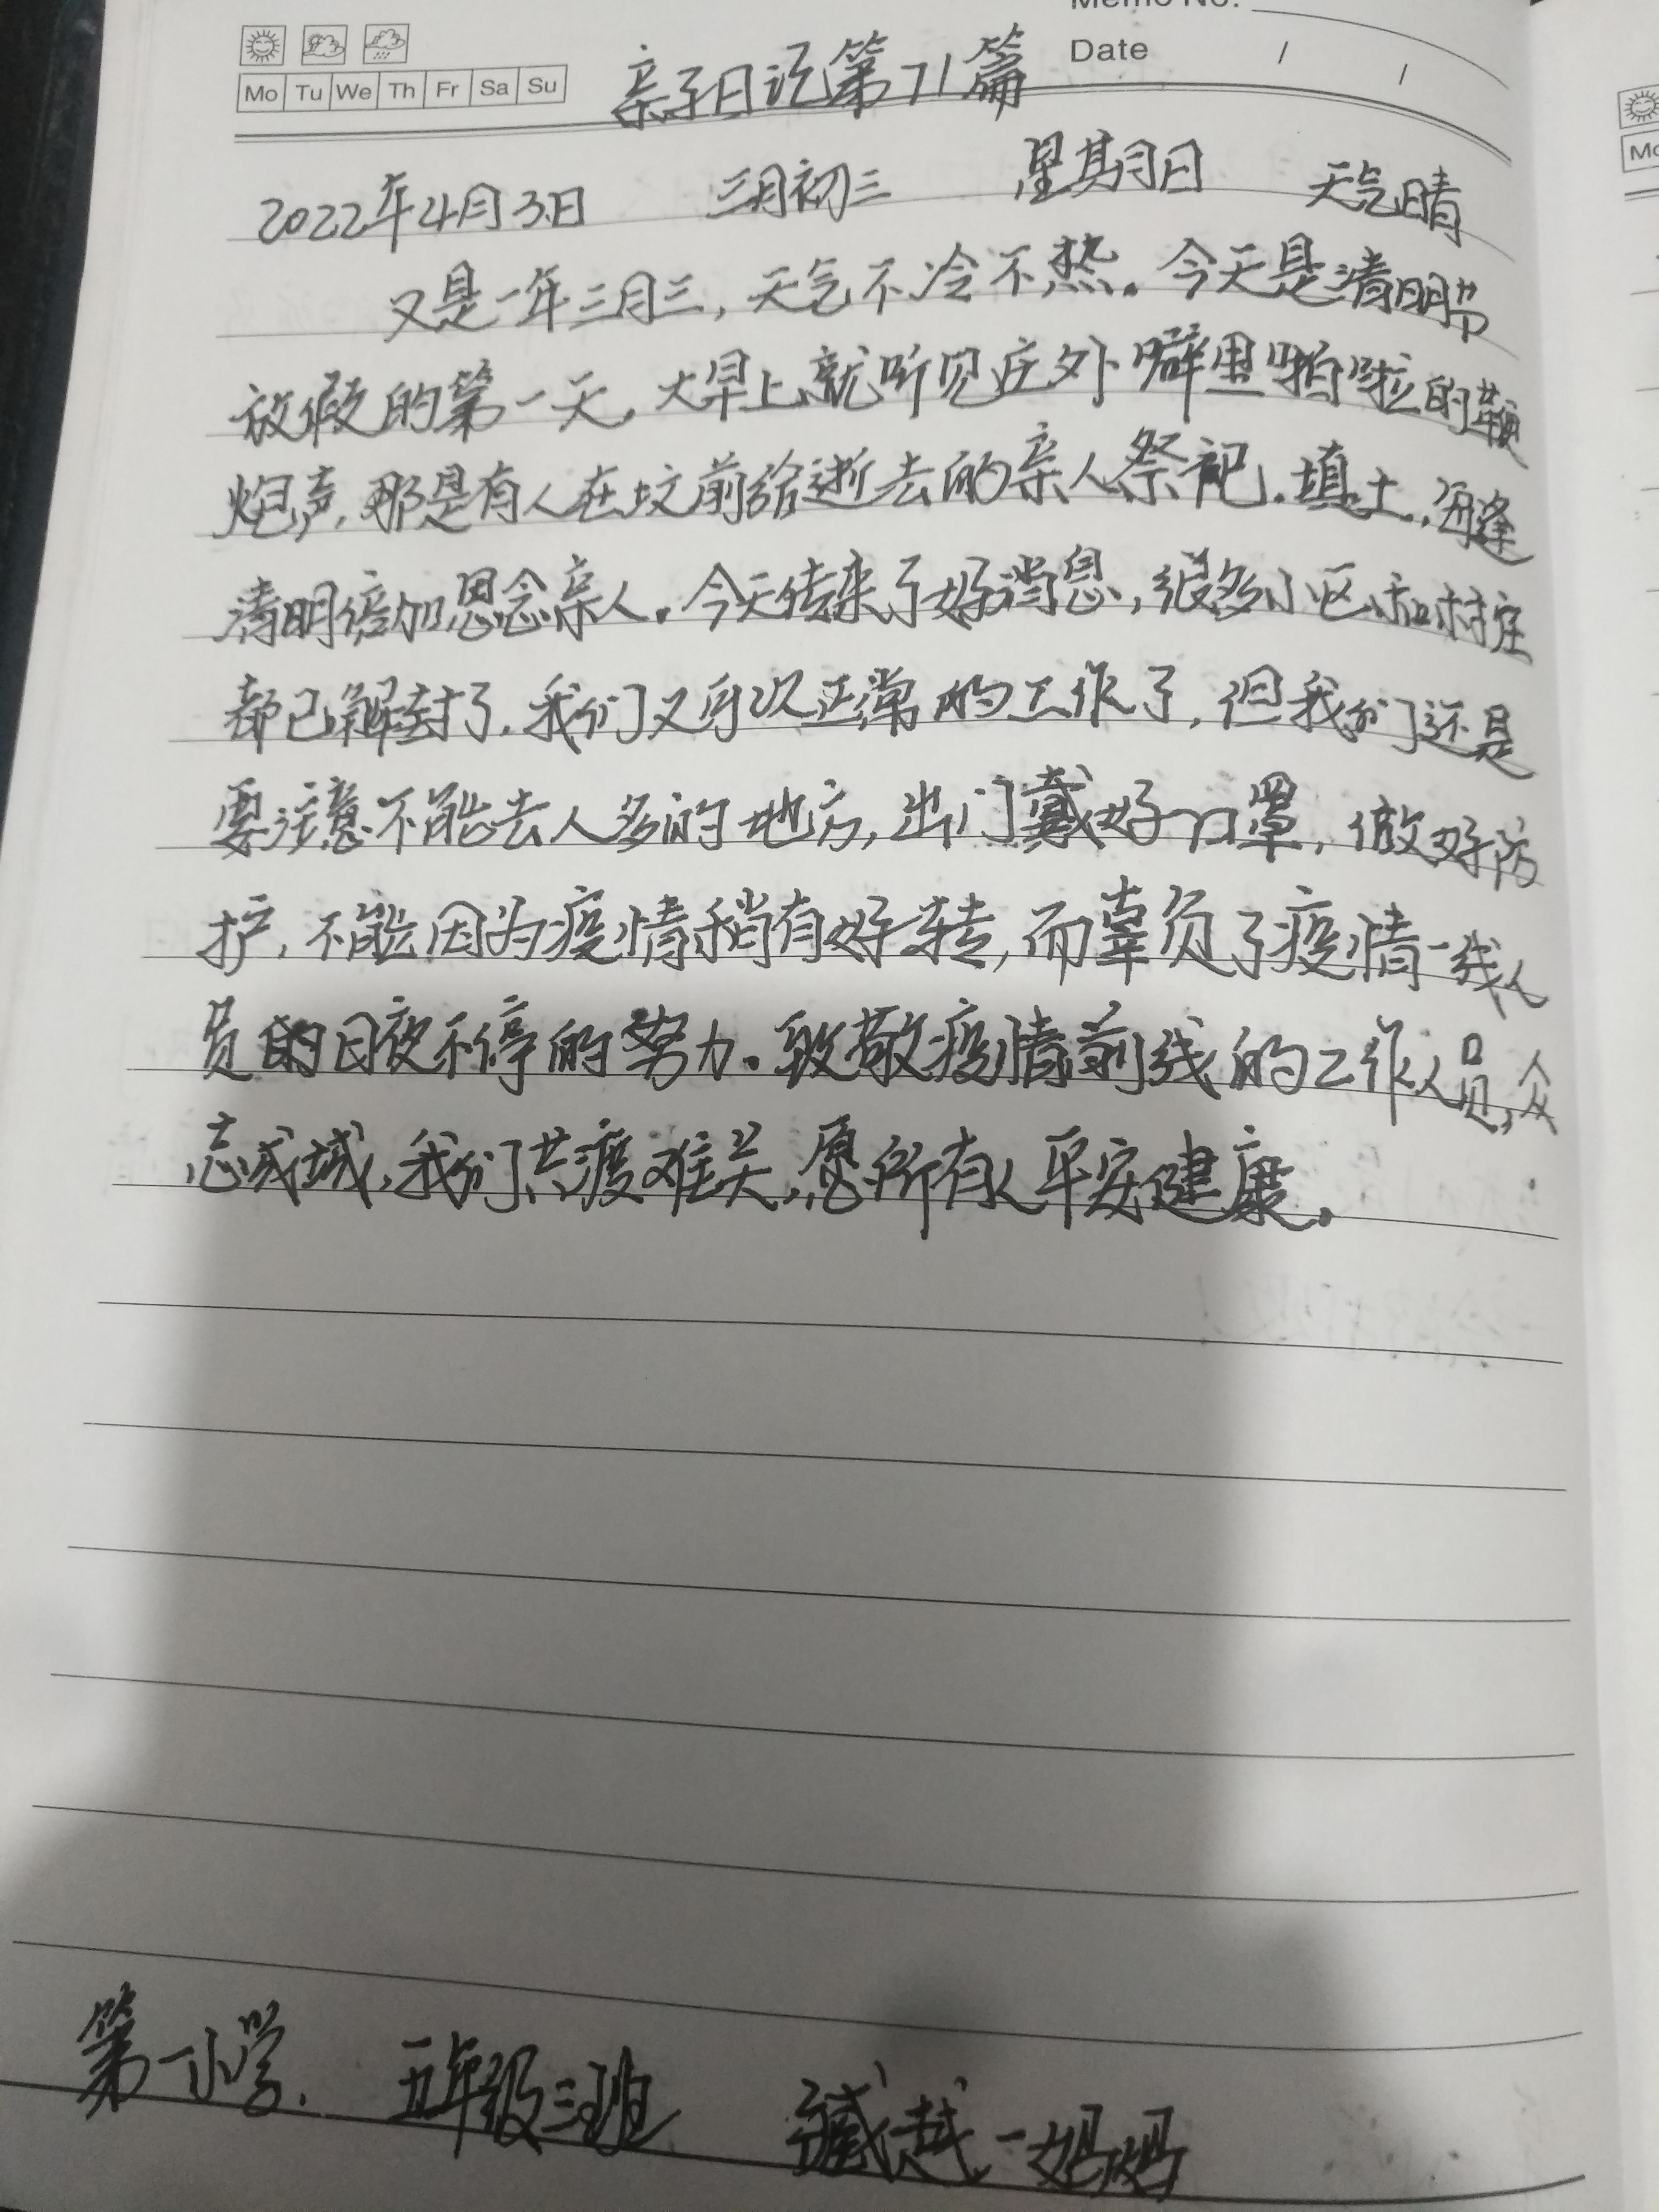 Memo No.
Mo Tu We Th Fr Sa Su
亲子日记第71篇
Date / /
2022年4月3日 三月初三 星期日 天气晴
又是一年三月三，天气不冷不热。今天是清明节
放假的第一天，大早上就听见庄外噼里啪啦的鞭
炮声，那是有人在坟前给逝去的亲人祭祀．填土．，每逢
清明倍加思念亲人。今天传来了好消息，很多小区和村庄
都已解封了．我们又再次正常的工作了，但我们还是
要注意不能去人多的地方，出门戴好口罩，做好防
护，不能因为疫情稍有好转，而辜负了疫情一线人
员的日夜不停的努力。致敬疫情前线的工作人员，众
志成城，我们共渡难关，愿所有人平安健康。
第一小学． 五年级三班 臧越一妈妈
Mo